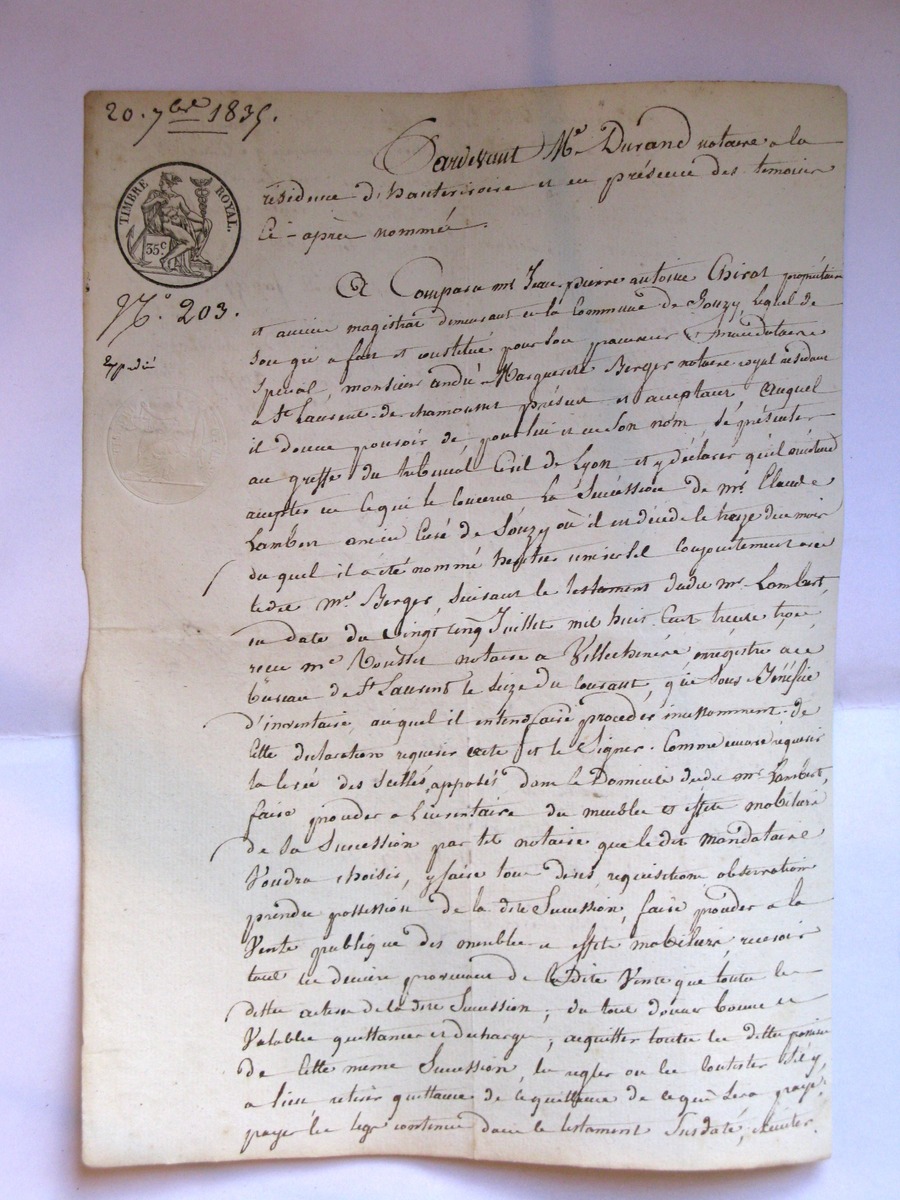 20. 7bre 1835.
TIMBRE ROYAL.
35c
N.° 203.
Expédié
Pardevant Me Durand notaire a la
résidence d'hauterivoire et en présence des temoins
Ci-après nommés.
A Comparu mr Jean pierre antoine Chirat propriétaire
et ancien magistrat demeurant en la Commune de Souzy, lequel de
son gré a fait et constitué pour son procureur & mandataire
spécial, monsieur andré Marguerite Berger notaire royal résidant
a St Laurent-de-chamousset présent et acceptant, auquel
il donne pouvoir de, pour lui et en son nom, se présenter
au greffe du tribunal Civil de Lyon et y déclarer qu'il n'entend
accepter en ce qui le Concerne la Succession de mr Claude
Lambert ancien Curé de Souzy où il est décédé le treize du mois
du quel il a été nommé heritier universel Conjointement avec
ledit mr Berger, suivant le testament dudit mr Lambert,
en date du vingt cinq Juillet mil huit Cent trente trois,
recu me Rousset notaire a Villechenève, enrégistré au
bureau de St Laurent le seize du courant, que sous Bénéfice
d'inventaire, auquel il entend faire procéder incessamment. de
Cette déclaration requerir acte & et le Signer. Comme encore réquerir
la levée des scellés, apposés dans le Domicile dudit mr Lambert,
faire procéder a l'inventaire des meubles et effets mobiliers
de la Succession par tel notaire que ledit mandataire
voudra choisir, y faire tous dires, requisitions, observations
prendre possession de la dite Succession, faire procéder a la
Vente publique des meubles et effets mobiliers, recevoir
tous les deniers provenants de la Dite Vente que toutes les
dettes actives de la dite Succession, du tout donner bonne et
Valable quittance et decharge, acquitter toutes les dettes passives
de Cette meme Succession, les regler ou les Contester S'il y
a lieu retirer quittance de ce qui sera payé,
payer les legs contenus dans le testament Susdaté, éxécuter